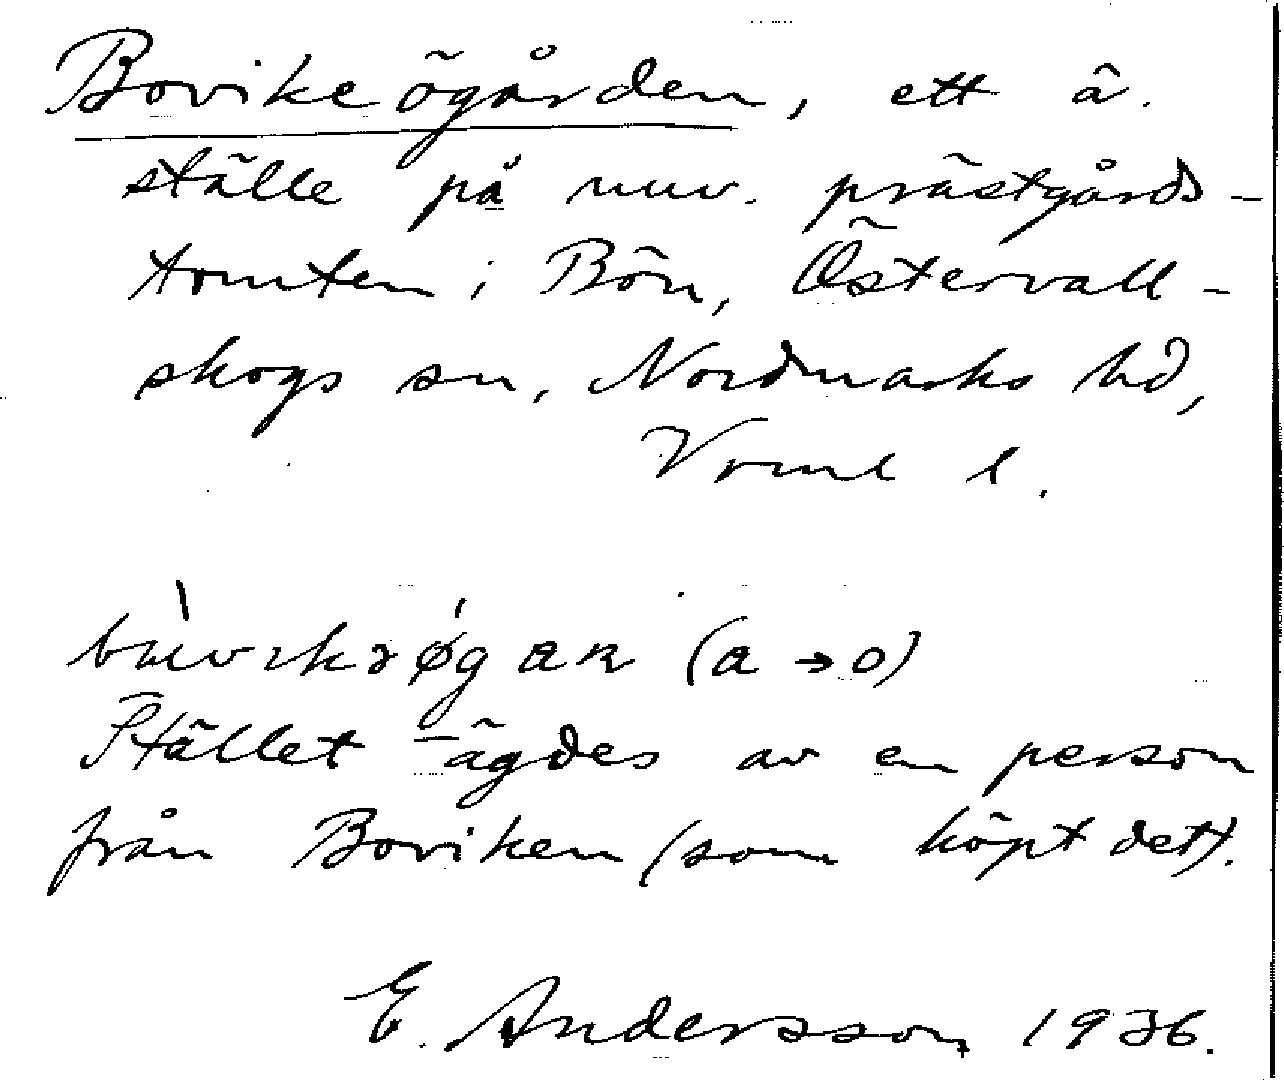 Bovikeögården, ett å.
ställe på nuv. prästgårds-
tomten i Bön, Östervall-
skogs sn, Nordmarks hd,
Vrml l.
(a → o)
Stället ägdes av en person
från Boviken (som köpt det).
E. Andersson 1936.